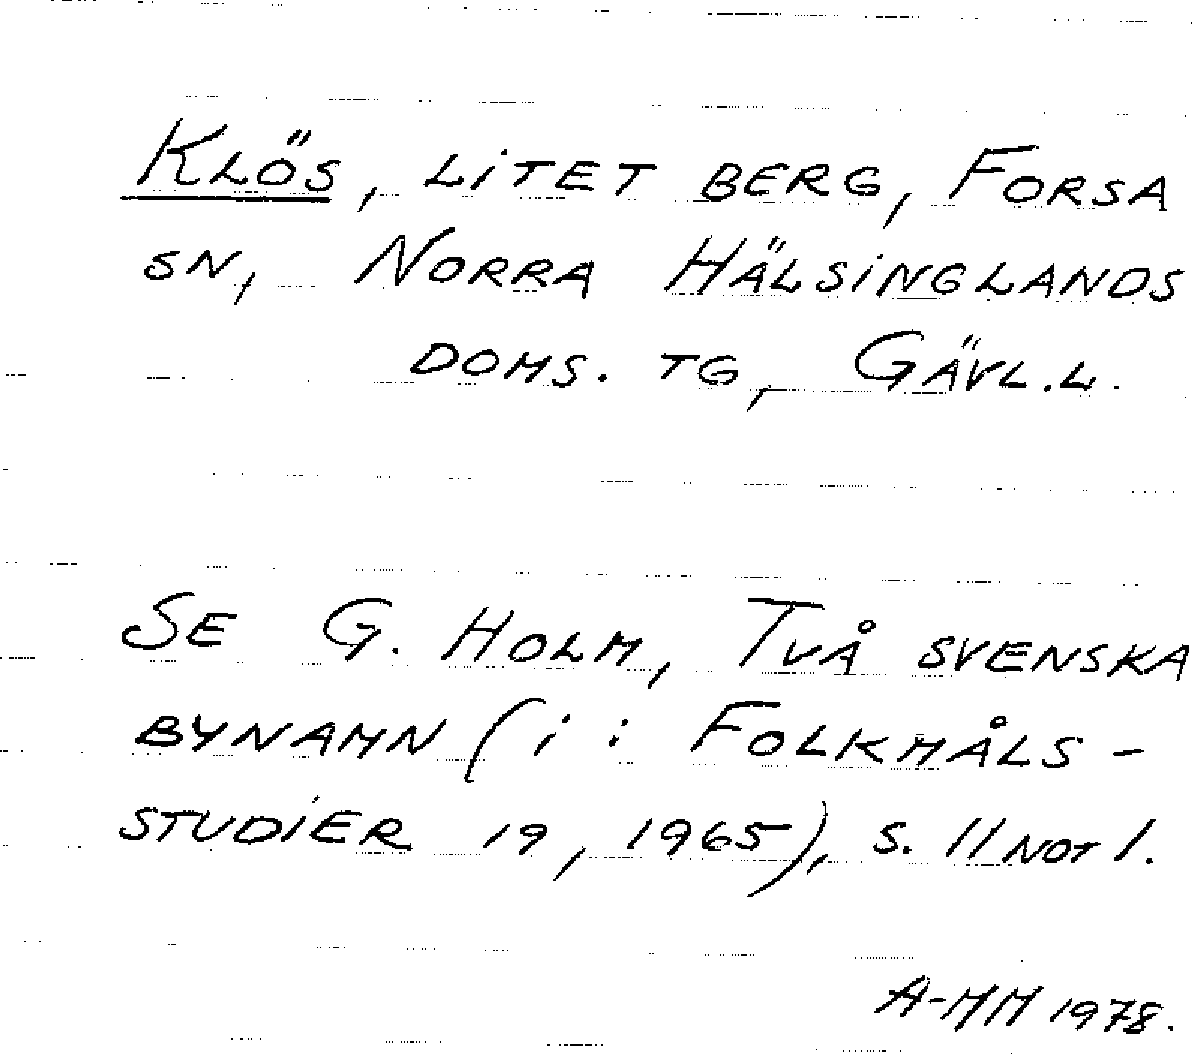 KLÖS, LITET BERG, FORSA
SN, NORRA HÄLSINGLANDS
DOMS. TG, GÄVL.L.
SE G. HOLM, TVÅ SVENSKA
BYNAMN (I: FOLKMÅLS-
STUDIER 19, 1965), S. 11 NOT 1.
A-MM 1978.